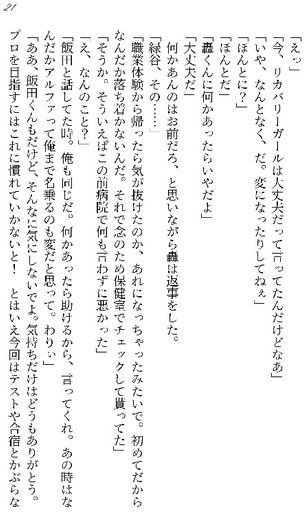 21
「えっ」
「今、リカバリーガールは大丈夫だって言ってたんだけどなあ」
「いや、なんとなく、だ。変になったりしてねぇ」
「ほんとに?」
「ほんとだ」
「轟くんに何かあったらいやだよ」
「大丈夫だ」
何かあんのはお前だろ、と思いながら轟は返事をした。
「緑谷、その……」
「職業体験から帰ったら気が抜けたのか、あれになっちゃったみたいで。初めてだから
なんだか落ち着かないんだ。それで念のため保健室でチェックして貰ってた」
「そうか。そういえばこの前病院で何も言わずに悪かった」
「え、なんのこと?」
「飯田と話してた時。俺も同じだ。何かあったら助けるから、言ってくれ。あの時はな
んだかアルファって俺まで名乗るのも変だと思って。わりぃ」
「ああ、飯田くんもだけど、そんなに気にしないでよ。気持ちだけはどうもありがとう。
プロを目指すにはこれに慣れていかないと! とはいえ今回はテストや合宿とかぶらな